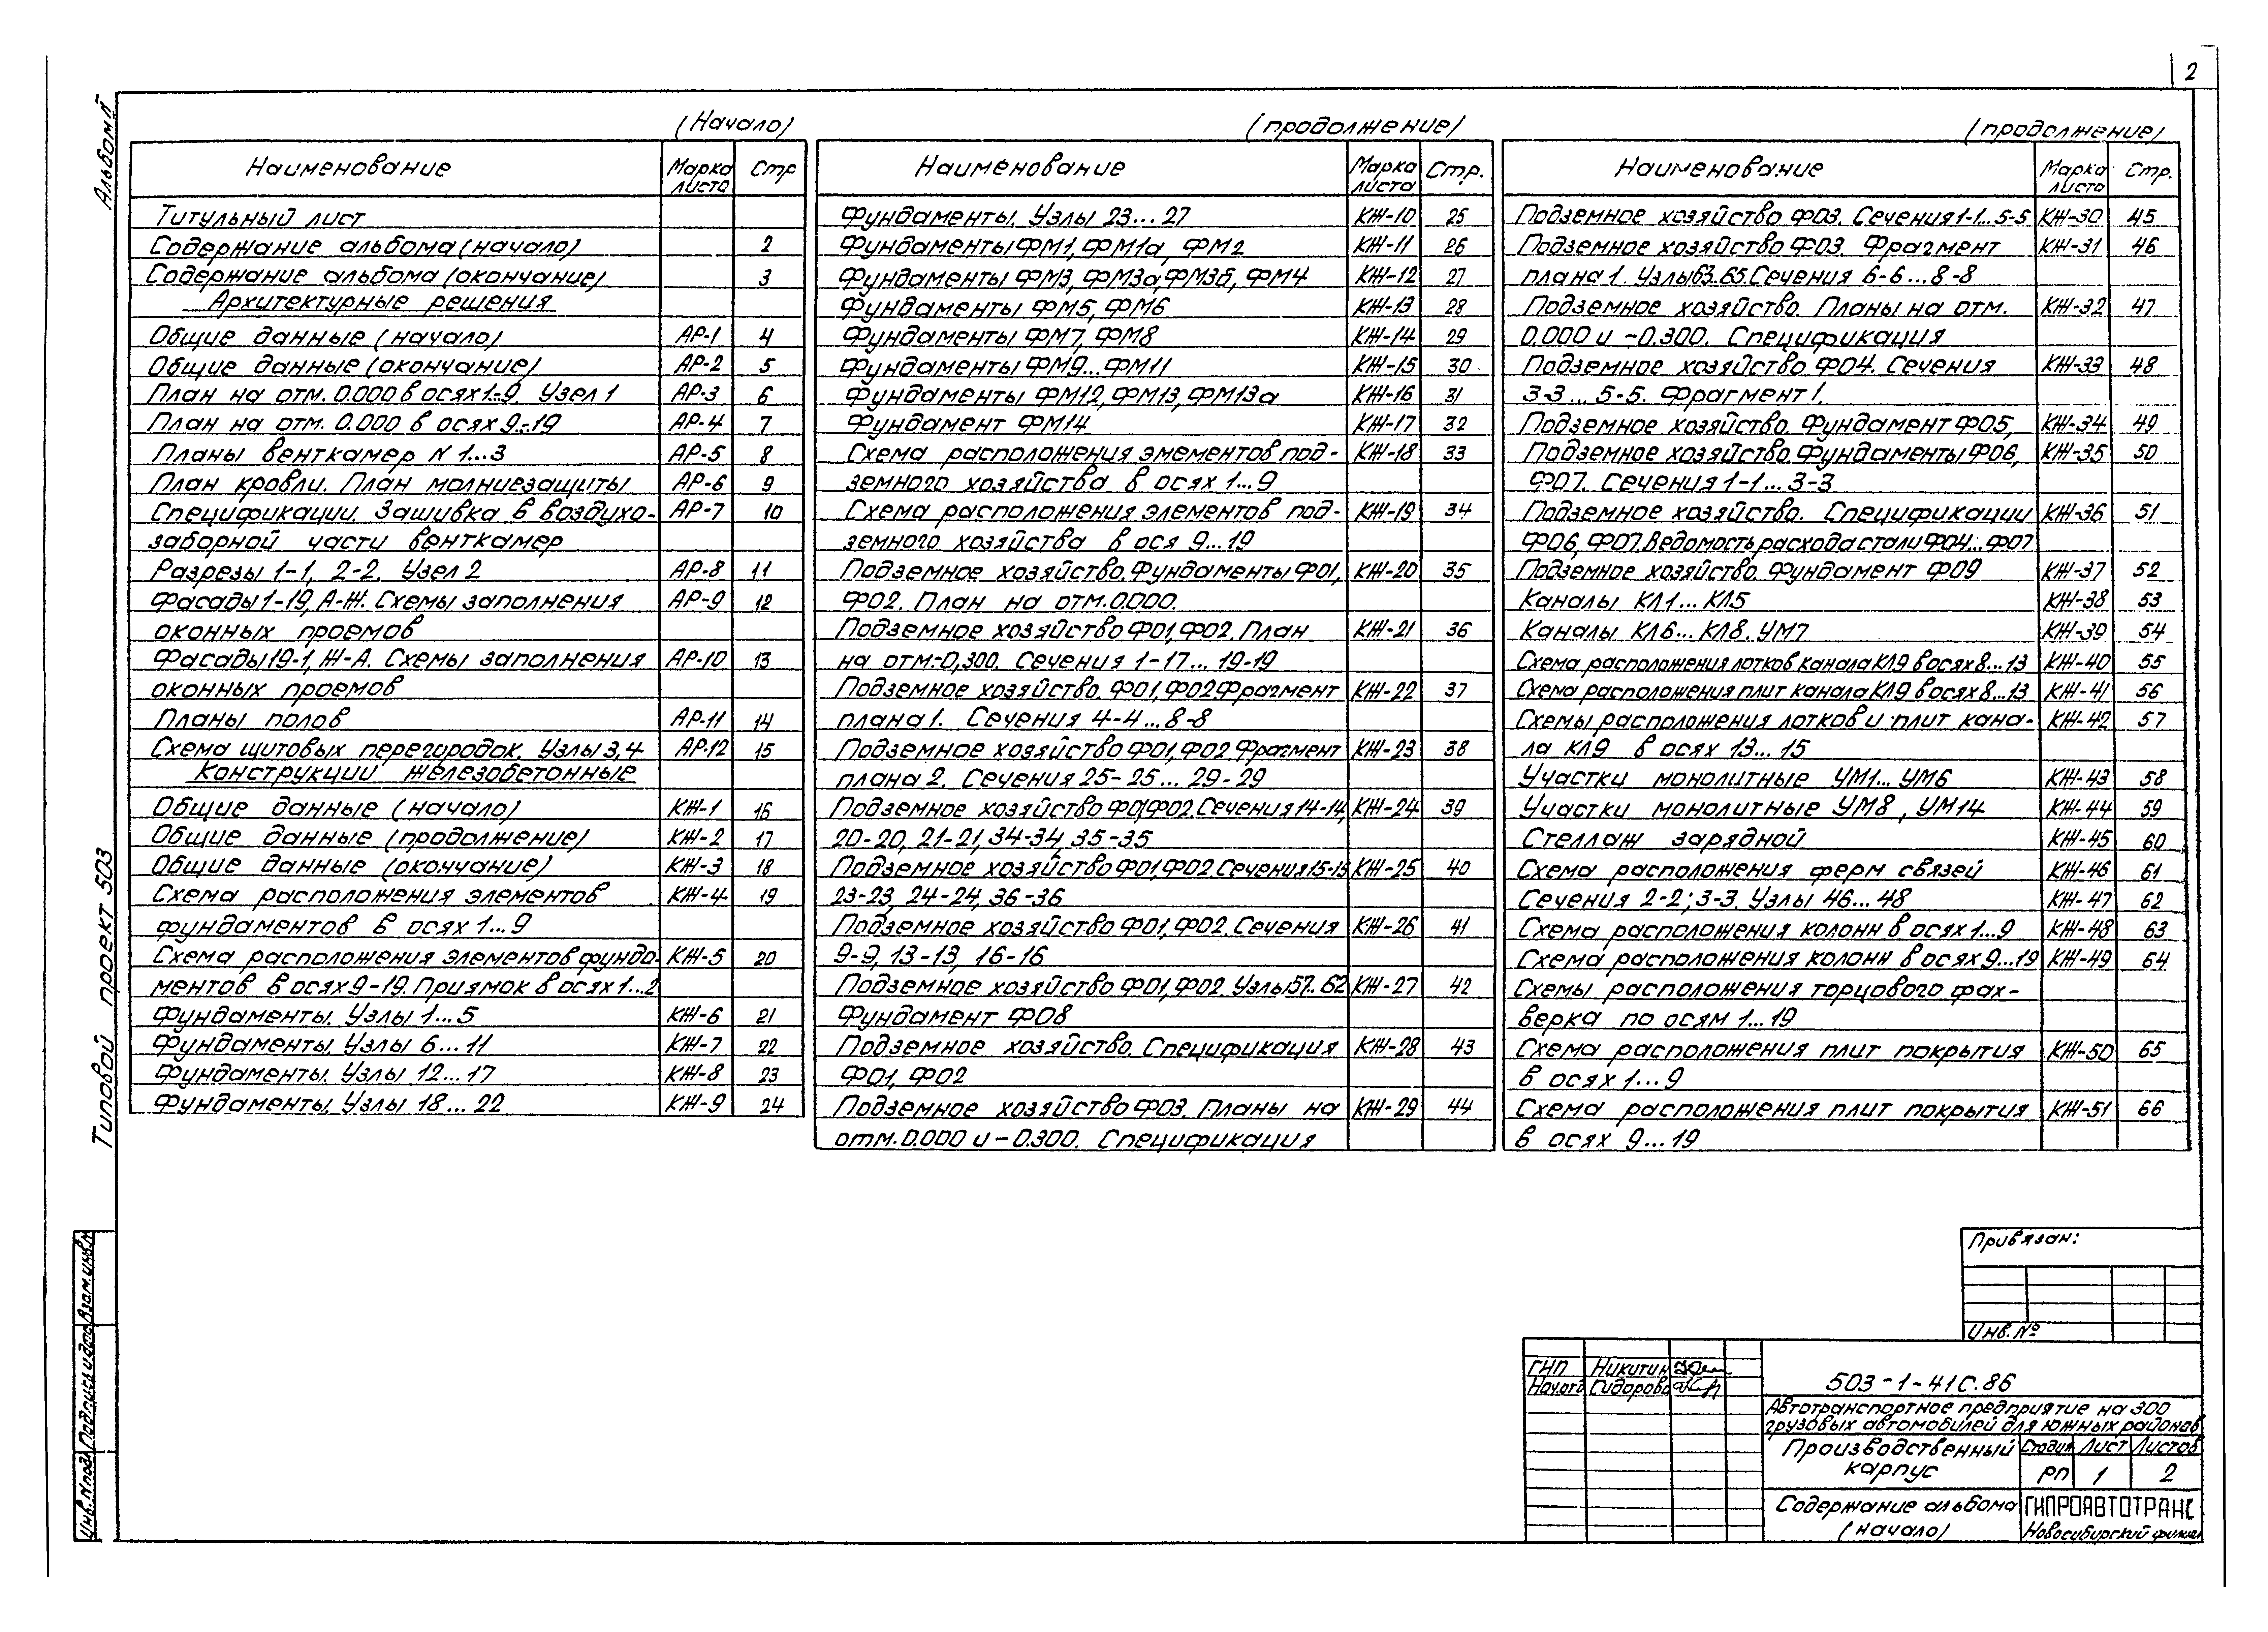 2
Альбом II
Типовой проект 503
(Начало)
Наименование Марка листа Стр
Титульный лист
Содержание альбома (начало) 2
Содержание альбома (окончание) 3
Архитектурные решения
Общие данные (начало) АР-1 4
Общие данные (окончание) АР-2 5
План на отм. 0.000 в осях 1-9. Узел 1 АР-3 6
План на отм. 0.000 в осях 9-19 АР-4 7
Планы венткамер N 1...3 АР-5 8
План кровли. План молниезащиты АР-6 9
Спецификации. Зашивка в воздухо- АР-7 10
заборной части венткамер
Разрезы 1-1, 2-2. Узел 2 АР-8 11
Фасады 1-19, А-Ж. Схемы заполнения АР-9 12
оконных проемов
Фасады 19-1, Ж-А. Схемы заполнения АР-10 13
оконных проемов
Планы полов АР-11 14
Схема щитовых перегородок. Узлы 3,4 АР-12 15
Конструкции железобетонные
Общие данные (начало) КЖ-1 16
Общие данные (продолжение) КЖ-2 17
Общие данные (окончание) КЖ-3 18
Схема расположения элементов КЖ-4 19
фундаментов в осях 1...9
Схема расположения элементов фунда- КЖ-5 20
ментов в осях 9-19. Приямок в осях 1...2
Фундаменты. Узлы 1...5 КЖ-6 21
Фундаменты. Узлы 6...11 КЖ-7 22
Фундаменты. Узлы 12...17 КЖ-8 23
Фундаменты. Узлы 18...22 КЖ-9 24
(продолжение)
Наименование Марка листа Стр.
Фундаменты. Узлы 23...27 КЖ-10 25
Фундаменты ФМ1, ФМ1а, ФМ2 КЖ-11 26
Фундаменты ФМ3, ФМ3а, ФМ3б, ФМ4 КЖ-12 27
Фундаменты ФМ5, ФМ6 КЖ-13 28
Фундаменты ФМ7, ФМ8 КЖ-14 29
Фундаменты ФМ9...ФМ11 КЖ-15 30
Фундаменты ФМ12, ФМ13, ФМ13а КЖ-16 31
Фундамент ФМ14 КЖ-17 32
Схема расположения элементов под- КЖ-18 33
земного хозяйства в осях 1...9
Схема расположения элементов под- КЖ-19 34
земного хозяйства в ося 9...19
Подземное хозяйство. Фундаменты Ф01, КЖ-20 35
Ф02. План на отм. 0.000.
Подземное хозяйство Ф01, Ф02. План КЖ-21 36
на отм.-0,300. Сечения 1-17...19-19
Подземное хозяйство. Ф01, Ф02 Фрагмент КЖ-22 37
плана 1. Сечения 4-4...8-8
Подземное хозяйство Ф01, Ф02 Фрагмент КЖ-23 38
плана 2. Сечения 25-25...29-29
Подземное хозяйство Ф01, Ф02. Сечения 14-14, КЖ-24 39
20-20, 21-21, 34-34, 35-35
Подземное хозяйство Ф01, Ф02. Сечения 15-15 КЖ-25 40
23-23, 24-24, 36-36
Подземное хозяйство Ф01, Ф02. Сечения КЖ-26 41
9-9, 13-13, 16-16
Подземное хозяйство Ф01, Ф02. Узлы 57..62 КЖ-27 42
Фундамент Ф08
Подземное хозяйство. Спецификация КЖ-28 43
Ф01, Ф02
Подземное хозяйство Ф03. Планы на КЖ-29 44
отм. 0.000 и -0.300. Спецификация
(продолжение)
Наименование Марка листа Стр.
Подземное хозяйство Ф03. Сечения 1-1...5-5 КЖ-30 45
Подземное хозяйство Ф03. Фрагмент КЖ-31 46
плана 1. Узлы 63..65. Сечения 6-6...8-8
Подземное хозяйство. Планы на отм. КЖ-32 47
0.000 и -0.300. Спецификация
Подземное хозяйство Ф04. Сечения КЖ-33 48
3-3...5-5. Фрагмент 1.
Подземное хозяйство. Фундамент Ф05, КЖ-34 49
Подземное хозяйство. Фундаменты Ф06, КЖ-35 50
Ф07. Сечения 1-1...3-3
Подземное хозяйство. Спецификации КЖ-36 51
Ф06, Ф07. Ведомость расхода стали Ф04...Ф07
Подземное хозяйство. Фундамент Ф09 КЖ-37 52
Каналы КЛ1...КЛ5 КЖ-38 53
Каналы КЛ6...КЛ8. УМ7 КЖ-39 54
Схема расположения лотков канала КЛ9 в осях 8...13 КЖ-40 55
Схема расположения плит канала КЛ9 в осях 8...13 КЖ-41 56
Схемы расположения лотков и плит кана- КЖ-42 57
ла КЛ9 в осях 13...15
Участки монолитные УМ1...УМ6 КЖ-43 58
Участки монолитные УМ8, УМ14 КЖ-44 59
Стеллаж зарядной КЖ-45 60
Схема расположения ферм связей КЖ-46 61
Сечения 2-2; 3-3. Узлы 46...48 КЖ-47 62
Схема расположения колонн в осях 1...9 КЖ-48 63
Схема расположения колонн в осях 9...19 КЖ-49 64
Схемы расположения торцового фах-
верка по осям 1...19
Схема расположения плит покрытия КЖ-50 65
в осях 1...9
Схема расположения плит покрытия КЖ-51 66
в осях 9...19
Инв. N подл. Подпись и дата Взам. инв. N
Привязан:
Инв. №
ГИП Никитин
Нач. отд Сидорова
503-1-41С.86
Автотранспортное предприятие на 300
грузовых автомобилей для южных районов
Производственный
карпус
Стадия Лист Листов
РП 1 2
Содержание альбома
(начало)
ГИПРОАВТОТРАНС
Новосибирский филиал